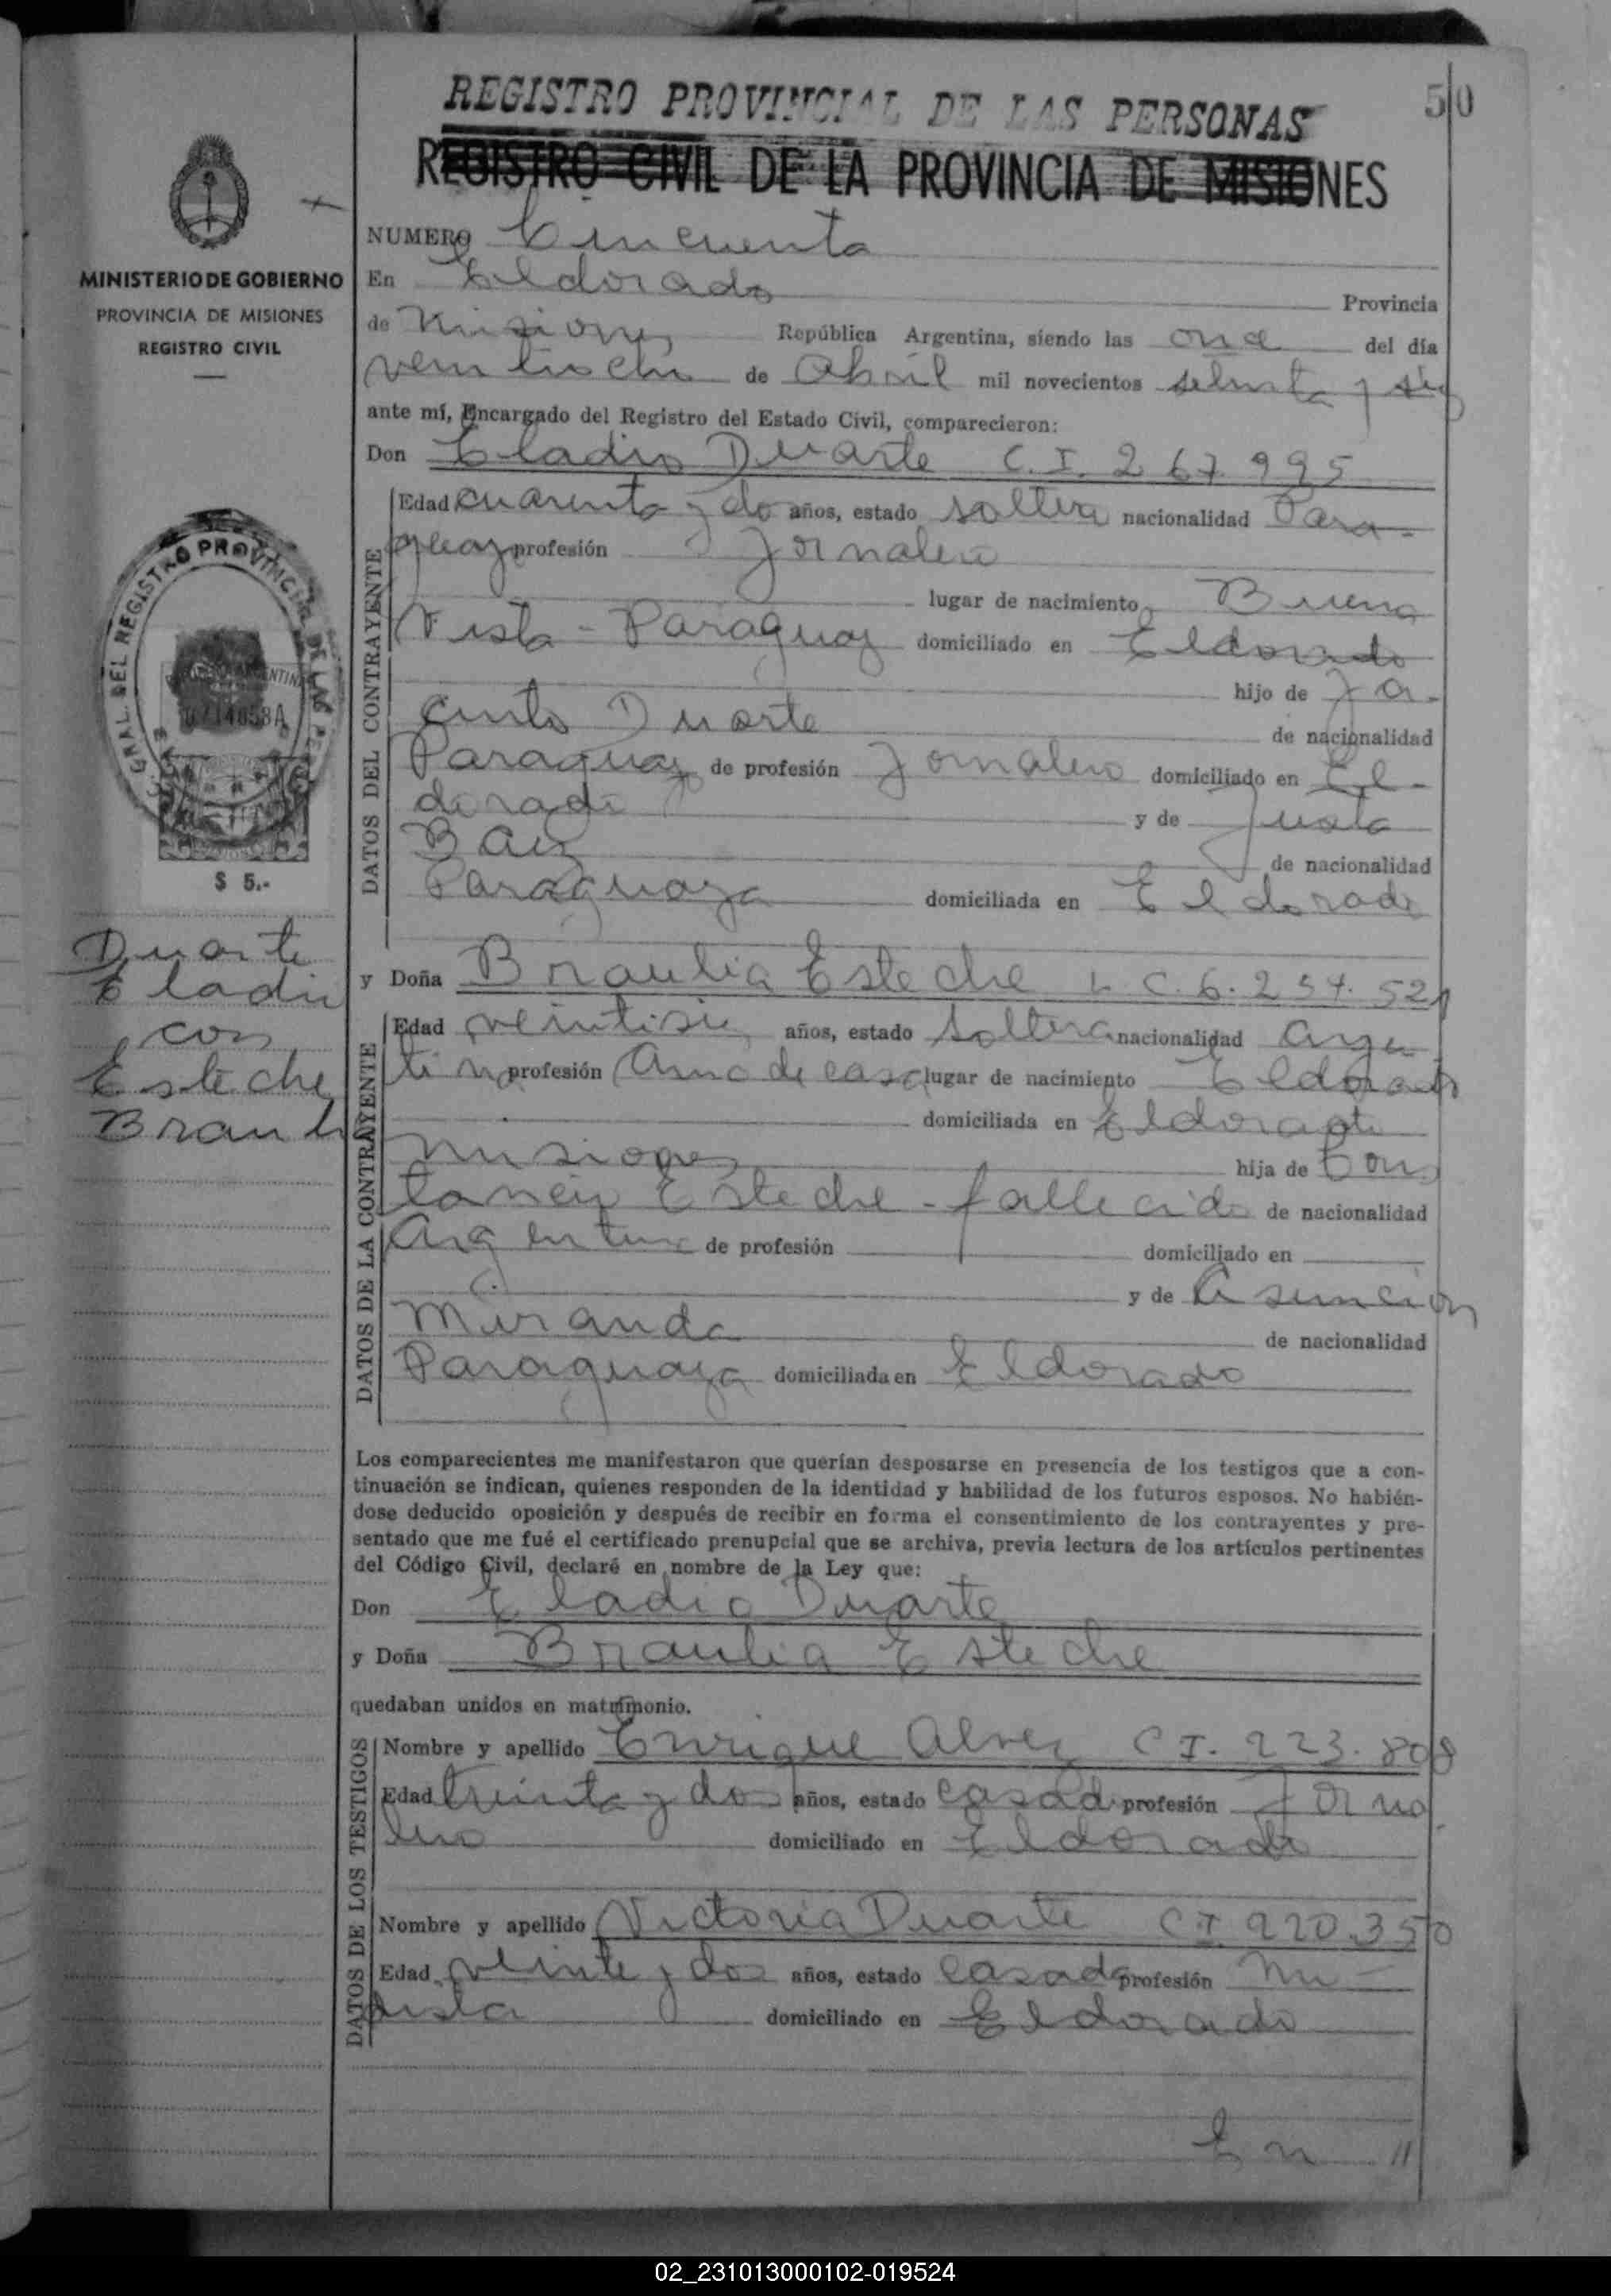 50
REGISTRO PROVINCIAL DE LAS PERSONAS
REGISTRO CIVIL DE LA PROVINCIA DE MISIONES
MINISTERIO DE GOBIERNO
PROVINCIA DE MISIONES
REGISTRO CIVIL
GRAL. DEL REGISTRO PROVINCIAL DE LAS PE
$ 5.-
Duarte
Eladio
con
Esteche
Brauli
NUMERO Cincuenta
En Eldorado Provincia
de Misiones República Argentina, siendo las once del día
veintiocho de Abril mil novecientos setenta y
ante mí, Encargado del Registro del Estado Civil, comparecieron:
Don Eladio Duarte C.I. 267.995
DATOS DEL CONTRAYENTE
Edad cuarenta y dos años, estado soltero nacionalidad Para-
guay profesión Jornalero
lugar de nacimiento Buena
Vista - Paraguay domiciliado en Eldorado
hijo de Ja-
cinto Duarte de nacionalidad
Paraguay de profesión Jornalero domiciliado en El-
dorado y de Justa
Baez de nacionalidad
Paraguaya domiciliada en Eldorado
y Doña Braulia Esteche L.C. 6.254.521
DATOS DE LA CONTRAYENTE
Edad años, estado soltera nacionalidad Argen
tina profesión Ama de casa lugar de nacimiento Eldorado
domiciliada en Eldorado
Misiones hija de Cons
tancio Esteche - fallecido de nacionalidad
Argentina de profesión domiciliado en
y de Asunción
Miranda de nacionalidad
Paraguaya domiciliada en Eldorado
Los comparecientes me manifestaron que querían desposarse en presencia de los testigos que a con-
tinuación se indican, quienes responden de la identidad y habilidad de los futuros esposos. No habién-
dose deducido oposición y después de recibir en forma el consentimiento de los contrayentes y pre-
sentado que me fué el certificado prenupcial que se archiva, previa lectura de los artículos pertinentes
del Código Civil, declaré en nombre de la Ley que:
Don Eladio Duarte
y Doña Braulia Esteche
quedaban unidos en matrimonio.
DATOS DE LOS TESTIGOS
Nombre y apellido Enrique Alvez C.I. 223.808
Edad treinta y dos años, estado casado profesión Jorna
lero domiciliado en Eldorado
Nombre y apellido Victoria Duarte C.I. 220.350
Edad veinte y dos años, estado casada profesión Mo-
dista domiciliado en Eldorado
En //
02_231013000102-019524